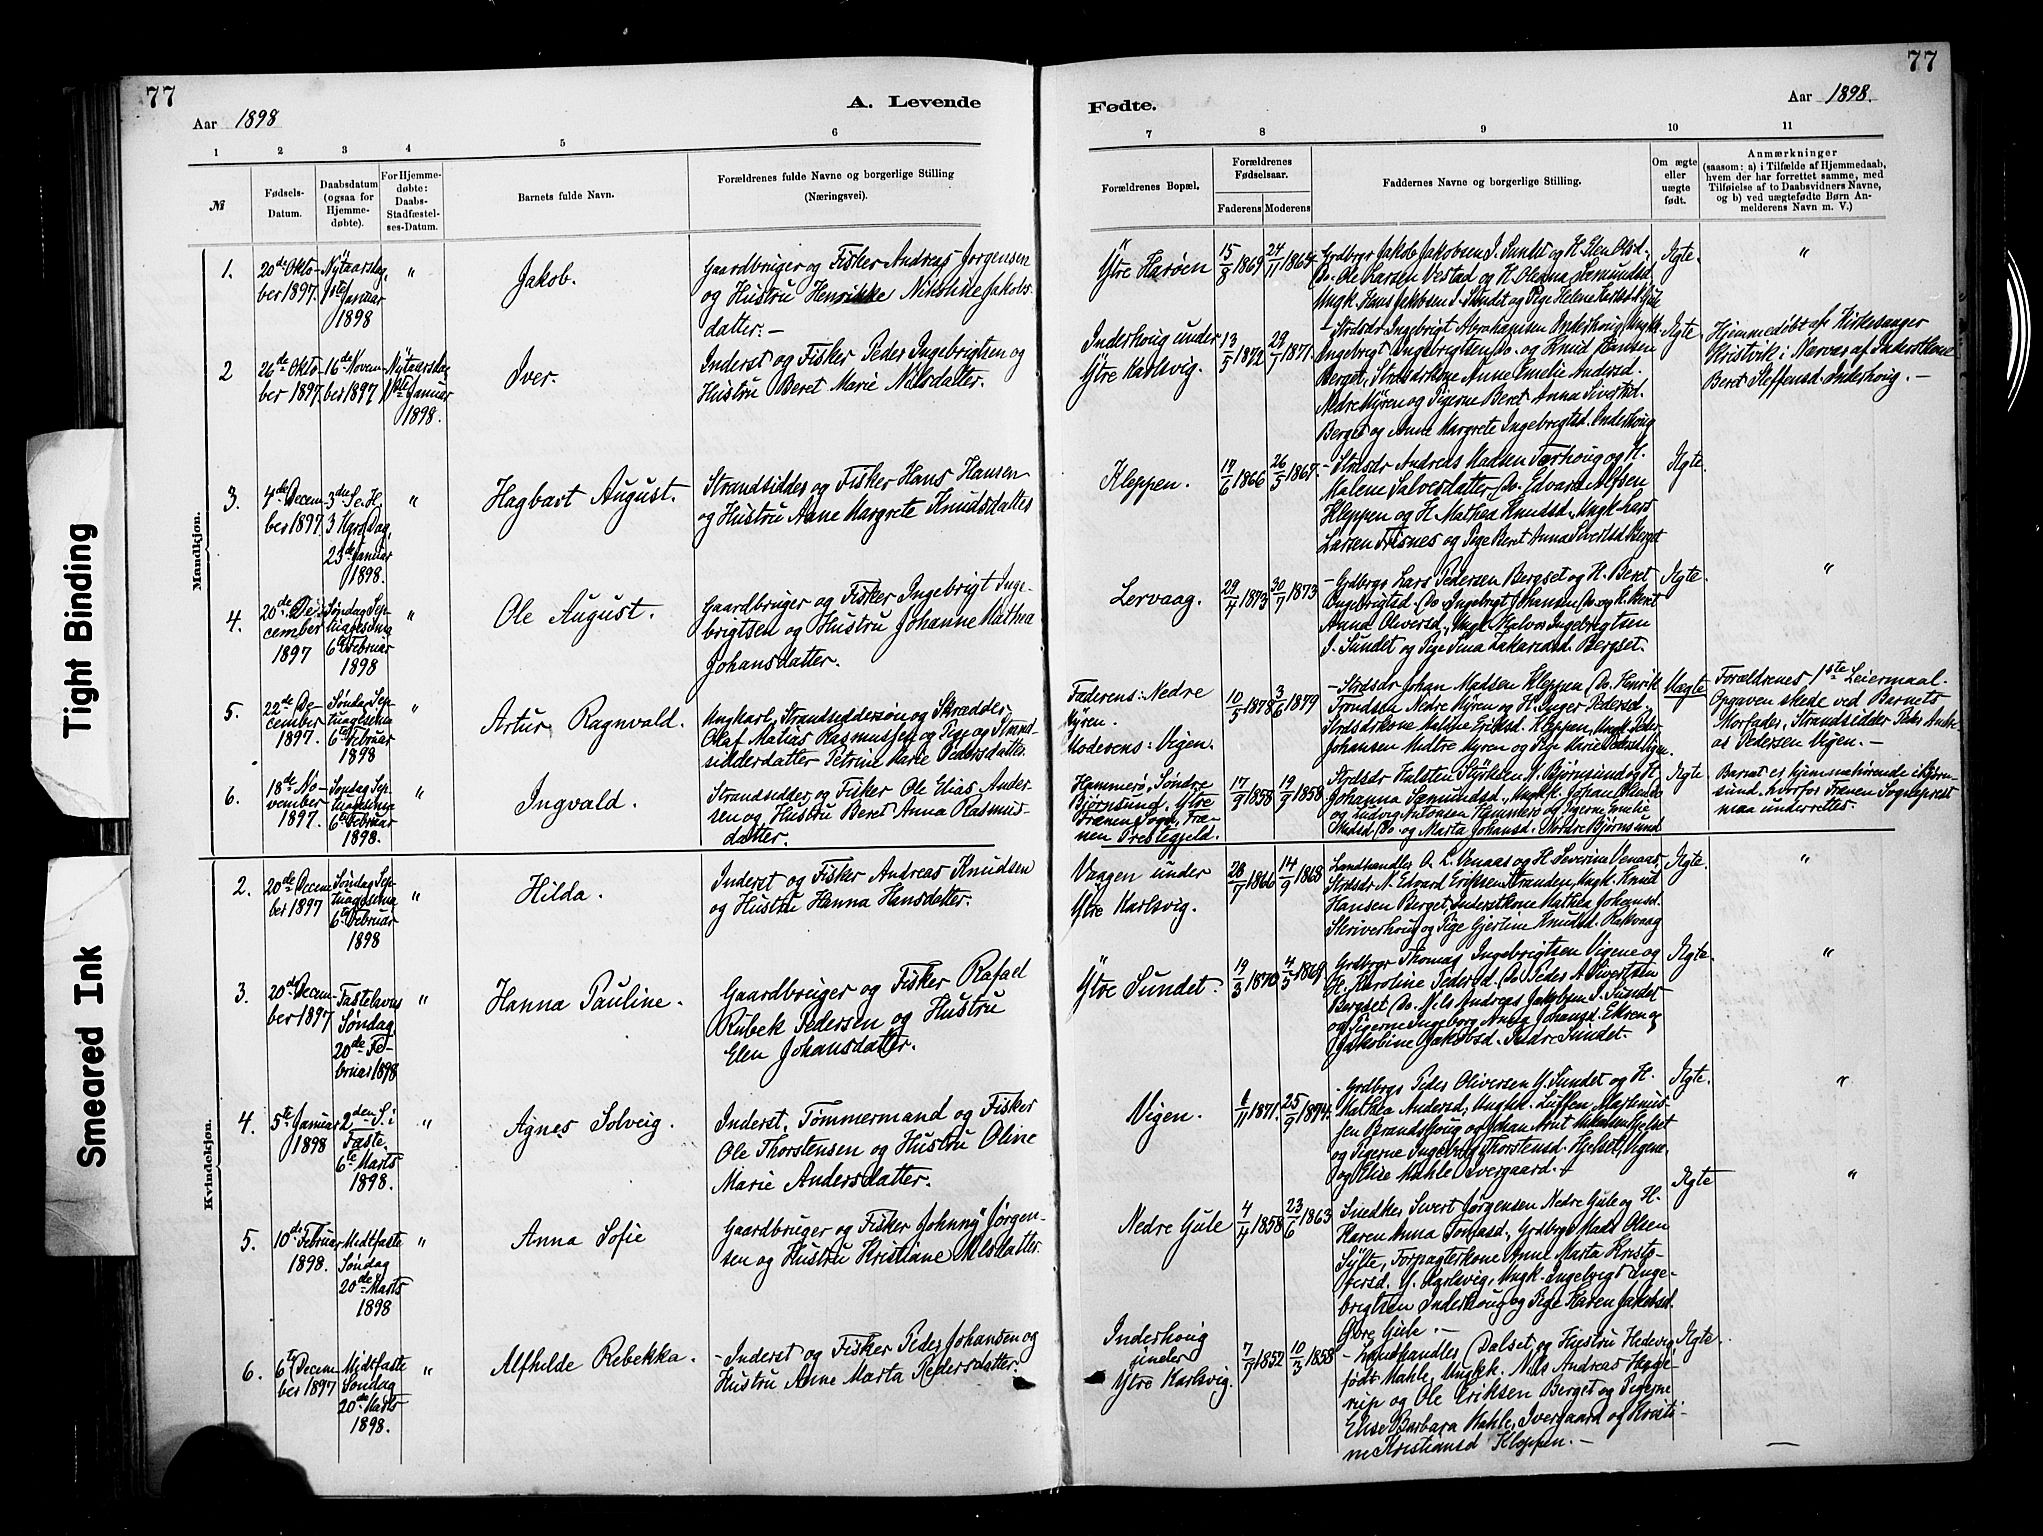 77
77
Aar 1898
A. Levende
Fødte.
Aar 1898.
1
2
3
4
5
6
7
8
9
10
11
№
Fødsels-
Datum.
Daabsdatum
(ogsaa for
Hjemme-
døbte).
For Hjemme-
døbte:
Daabs-
Stadfæstel-
ses-Datum.
Barnets fulde Navn.
Forældrenes fulde Navne og borgerlige Stilling
(Næringsvei).
Forældrenes Bopæl.
Forældrenes
Fødselsaar.
Faderens
Moderens
Faddernes Navne og borgerlige Stilling.
Om ægte
eller
uægte
født.
Anmærkninger
(saasom: a) i Tilfælde af Hjemmedaab,
hvem der har forrettet samme, med
Tilføielse af to Daabsvidners Navne,
og b) ved uægtefødte Børn An-
melderens Navn m. V.)
Mandkjøn.
1.
20de Okto-
ber 1897.
Nytaarsdag
1ste Januar
1898
"
Jakob.
Gaardbruger og Fisker Andreas Jørgensen
og Hustru Henrikke Nikoline Jakobs-
datter. —
Ytre Harøen
15/8 1869
24/11 1865
Grdbrgr Jakob Jakobsens I. Sundet og H. Elen Olsd.
Do. Ole Larsen Vestad og H. Oleana Samundsd.
Ungk. Hans Jakobsen I. Sundet og Pige Helene
Ægte.
"
2
26de Okto-
ber 1897
16de Novem-
ber 1897
Nytaarsdag
1ste Januar
1898.
Iver.
Inderst og Fisker Peder Ingebrigtsen og
Hustru Beret Marie Nilsdatter.
Inderhoug under
Ytre Karlsvig.
13/5 1872
29/7 1871.
- Strdsdr Ingebrigt Abrahamsen Inderhoug, Ungk.
Ingebrigt Ingebrigtsen Do. og Knud Hansen
Berget, Strdsdrkone Anne Emelie Andersd.
Nedre Myren og Pigerne Beret Anna Sivertsd.
Berget og Anne Margrete Ingebrigtsd. Inderhoug
Ægte
Hjemmedøbt af Kirkesanger
Kristvik i Nærvær af Inderstkone
Beret Steffensd. Inderhoug. —
3.
4de Decem
ber 1897
3die S. e. H.
3 Kgrs Dag,
23de Januar
1898.
"
Hagbart August.
Strandsidder og Fisker Hans Hansen
og Hustru Anne Margrete Knudsdatter
Kleppen.
17/6 1866
26/5 1867.
- Strdsdr Andreas Madsen Tørhoug og H.
Malene Salvesdatter, Do. Edvard Alfsen
Kleppen og H. Mathea Knudsd., Ungk. Lars
Larsen Frisnes og Pige Beret Anna Sivertsd. Berget
Ægte.
4.
20de De-
cember
1897
Søndag Sep-
tuagesima
6te Februar
1898
"
Ole August.
Gaardbruger og Fisker Ingebrigt Inge-
brigtsen og Hustru Johanne Mathea
Johansdatter.
Lervaag.
29/4 1873
30/7 1873
- Grdbrgr Lars Pedersen Bergset og H. Beret
Ingebrigtsd. Do. Ingebrigt Johansen Do. og H. Beret
Anna Olversd., Ungk. Halvor Ingebrigtsen
I. Sundet og Pige Sina Zakariasd. Bergset.
Ægte.
"
5.
22de De-
cember
1897.
Søndag Sep-
tuagesima
6te Februar
1898
"
Artur Ragnvald.
Ungkarl, Strandsiddersøn og Skrædder
Olaf Matias Rasmussen og Pige og Strand-
siddersdatter Petrine Marie Pedersdatter
Faderens: Nedre
Myren.
Moderens: Vigen.
10/5 1878
3/6 1879
- Strdsdr Johan Madsen Kleppen, Do. Henrik
Trondsen Nedre Myren og H. Inger Pedersd.
Strdsdrkone Malene Eriksd. Kleppen, Ungk. Peder
Johansen Midtre Myren og Pige Marie Pedersd. Vigen.
Uægte
Forældrenes 1ste Leiermaal.
Opgaven skede ved Barnets
Morfader, Strandsidder Peder Andre-
as Pedersen Vigen. —
6.
18de No-
vember
1897.
Søndag Sep-
tuagesima
6te Februar
1898.
"
Ingvald.
Strandsidder og Fisker Ole Elias Ander-
sen og Hustru Beret Anna Rasmus-
datter.
Hammerø, Søndre
Bjørnsund, Ytre
Frænen Sogn, Fræ-
nen Prestegjeld.
17/9 1858
19/9 1858
Strdsdr Halsten Styrksen N. Bjørnsund og H.
Johanna Samundsd., Ungk. Johan
og Ludvig Antonsen Hammerø og Pigerne Emelie
Do. og Marta Johansd. Nordre Bjørnsund
Ægte
Barnet er hjemmehørende i Bjørn-
sund, hvorfor Frænen Sogneprest
maa underrettes.
Kvindekjøn.
2.
20de Decem
ber 1897
Søndag Sep-
tuagesima
6te Februar
1898
"
Hilda.
Inderst og Fisker Andreas Knudsen
og Hustru Hanna Hansdatter.
Vaagen under
Ytre Karlsvig.
28/7 1866
14/9 1868
Landhandler O. L. Venaas og H. Severine Venaas,
Strdsdr N. Edvard Eriksen Stranden, Ungk. Knud
Hansen Berget, Inderstkone Mathea Johansd.
Skriverhoug og Pige Gjertine Knudsd. Rakvaag
Ægte.
"
3.
20de Decem-
ber 1897
Fastelavns
Søndag
20de Fe-
bruar 1898
"
Hanna Pauline.
Gaardbruger og Fisker Rafael
Rubek Pedersen og Hustru
Elen Johansdatter.
Ytre Sundet.
19/3 1870
4/5 1869
Grdbrgr Thomas Ingebrigtsen Vigene og
H. Karoline Pedersd. Do. Peder A. Sivertsen
Bergset, Do. Nils Andreas Jakobsen I. Sundet
og Pigerne Ingeborg Anna Johansd. Ekren og
Jakobine Jakobsd. Indre Sundet.
Ægte.
"
4.
5te Januar
1898
2den S. i
Faste
6te Marts
1898.
"
Agnes Solveig.
Inderst, Tømmermand og Fisker
Ole Thorstensen og Hustru Oline
Marie Andersdatter.
Vigen.
1871.
25/9 1874.
- Grdbrgr Peder Oliversen Y. Sundet og H.
Mathea Andersd., Ungk. Luffen Martinus-
sen Brandshoug og Johan Arnt Mikalsen Hjelset
og Pigerne Ingeborg Thorstensd. Hjelset, Vigene
og Elise Mahle Ivergaard.
Ægte.
"
5.
10de Februar
1898.
Midtfaste
Søndag
20de Marts
1898
"
Anna Sofie
Gaardbruger og Fisker Johnny Jørgen-
sen og Hustru Kristiane Nilsdatter.
Nedre Gule
4/4 1858
23/6 1863
Snedker Sivert Jørgensen Nedre Gule og H.
Karen Anna Tomasd., Grdbrgr Mads Olsen
Sylte, Forpagterkone Anne Marta Kristo-
fersd. Y. Karlsvig, Ungk. Ingebrigt Inge-
brigtsen Inderhoug og Pige Karen Jakobsd.
Øvre Gule. —
Ægte
"
6.
6te Decem
ber 1897
Midtfaste
Søndag
20de Marts
1898.
"
Alfhilde Rebekka.
- Inderst og Fisker Peder Johansen og
Hustru Anne Marta Pedersdatter.
Inderhoug
under
Ytre Karlsvig.
7/9 1852
10/3 1858
- Landhandler Dalset og Hustru Hedevig
født Mahle, Ungk. Nils Andreas Hegge-
rup og Ole Eriksen Berget og Pigerne
Elise Barbara Mahle, Ivergaard og Kristi-
ne Kristiansd Kleppen. —
Ægte.
—
Tight Binding
Smeared Ink